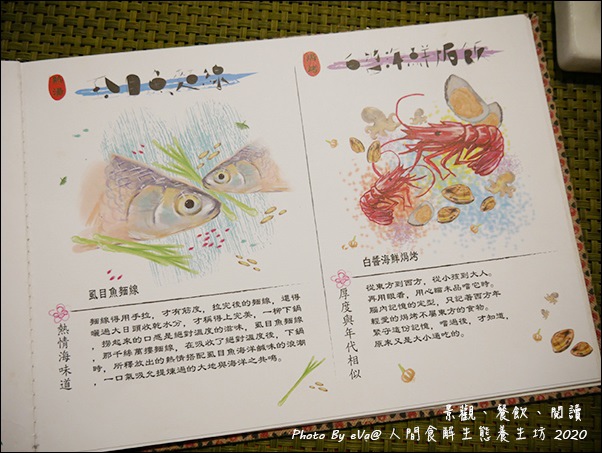 虱目魚麵線
熱情海味道
麵線得用手拉，才有筋度，拉完後的麵線，還得
曬過大日頭收乾水分，才稱得上完美，一柳下鍋
，撈起來的口感是絕對溫度的滋味，虱目魚麵線
，那千絲萬摟麵線，在吸收了絕對溫度後，下鍋
時，所釋放出的熱情搭配虱目魚海洋鹹味的浪潮
，一口氣吸允提煉過的大地與海洋之共鳴。
白醬海鮮焗烤
厚度與年代相似
從東方到西方，從小孩到大人。
再用眼看，用心瞄未品嚐它時。
腦內記憶的定型，只記著西方年
輕愛的焗烤不屬東方的食物。
緊守這份記憶，嚐過後，才知道，
原來又是大小通吃的。
景觀、餐飲、閱讀
Photo By eVa@ 人間食解生態養生坊 2020